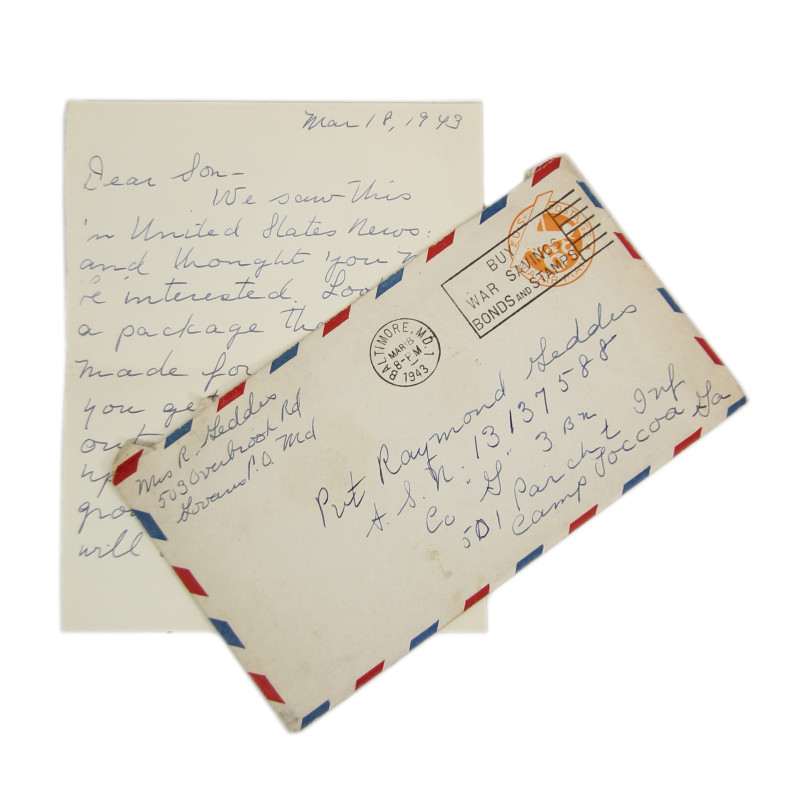 Mar 18, 1943
Dear Son-
We saw this
in United States News.
and thought you'
be interested.
a package
made for
you get
out
up
will
BUY
WAR SAVINGS
BONDS AND STAMPS
BALTIMORE, MD. 1
MAR 18
8-PM
1943
Mrs R. Geddes
503 Overbrook Rd
Govans P.O. Md
Pvt Raymond Geddes
A. S. N. 13137588
Co "G" 3 Bn
501 Parcht Inf
Camp Toccoa Ga